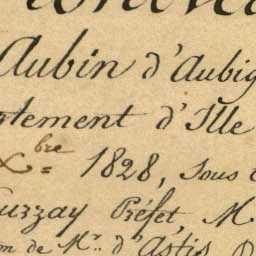 Aubin d'Aubig
rtement d'Ille
Xbre 1828, Sous
uzzay Préfet, M.
on de Mr. d'Astis